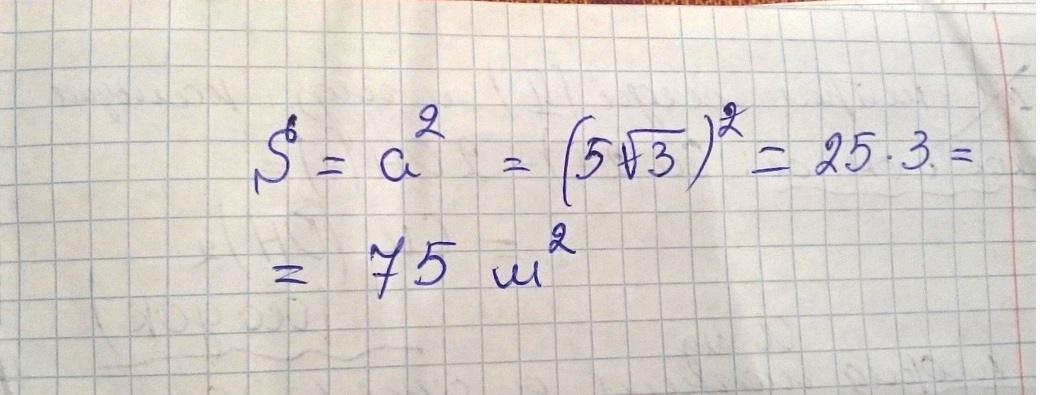 S = a² = (5√3)² = 25 · 3 =
= 75 м²